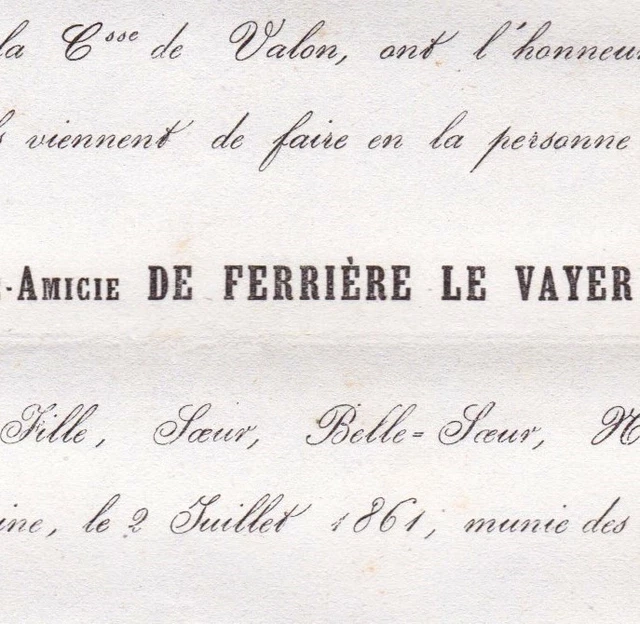 la Csse de Valon, ont l'honneur
viennent de faire en la personne
-Amicie DE FERRIÈRE LE VAYER
Fille, Sœur, Belle=Sœur,
ine, le 2 Juillet 1861, munie des